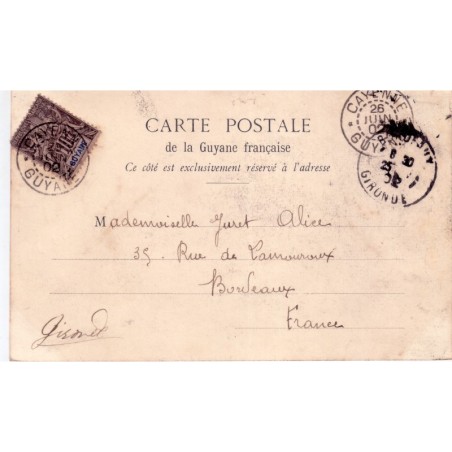 CAYENNE
GUYANE
02
CARTE POSTALE
de la Guyane française
Ce côté est exclusivement réservé à l'adresse
CAYENNE
26
JUIN
02
GUY
GIRONDE
Mademoiselle Juret Alice
35, Rue de Lamouroux
Bordeaux
France